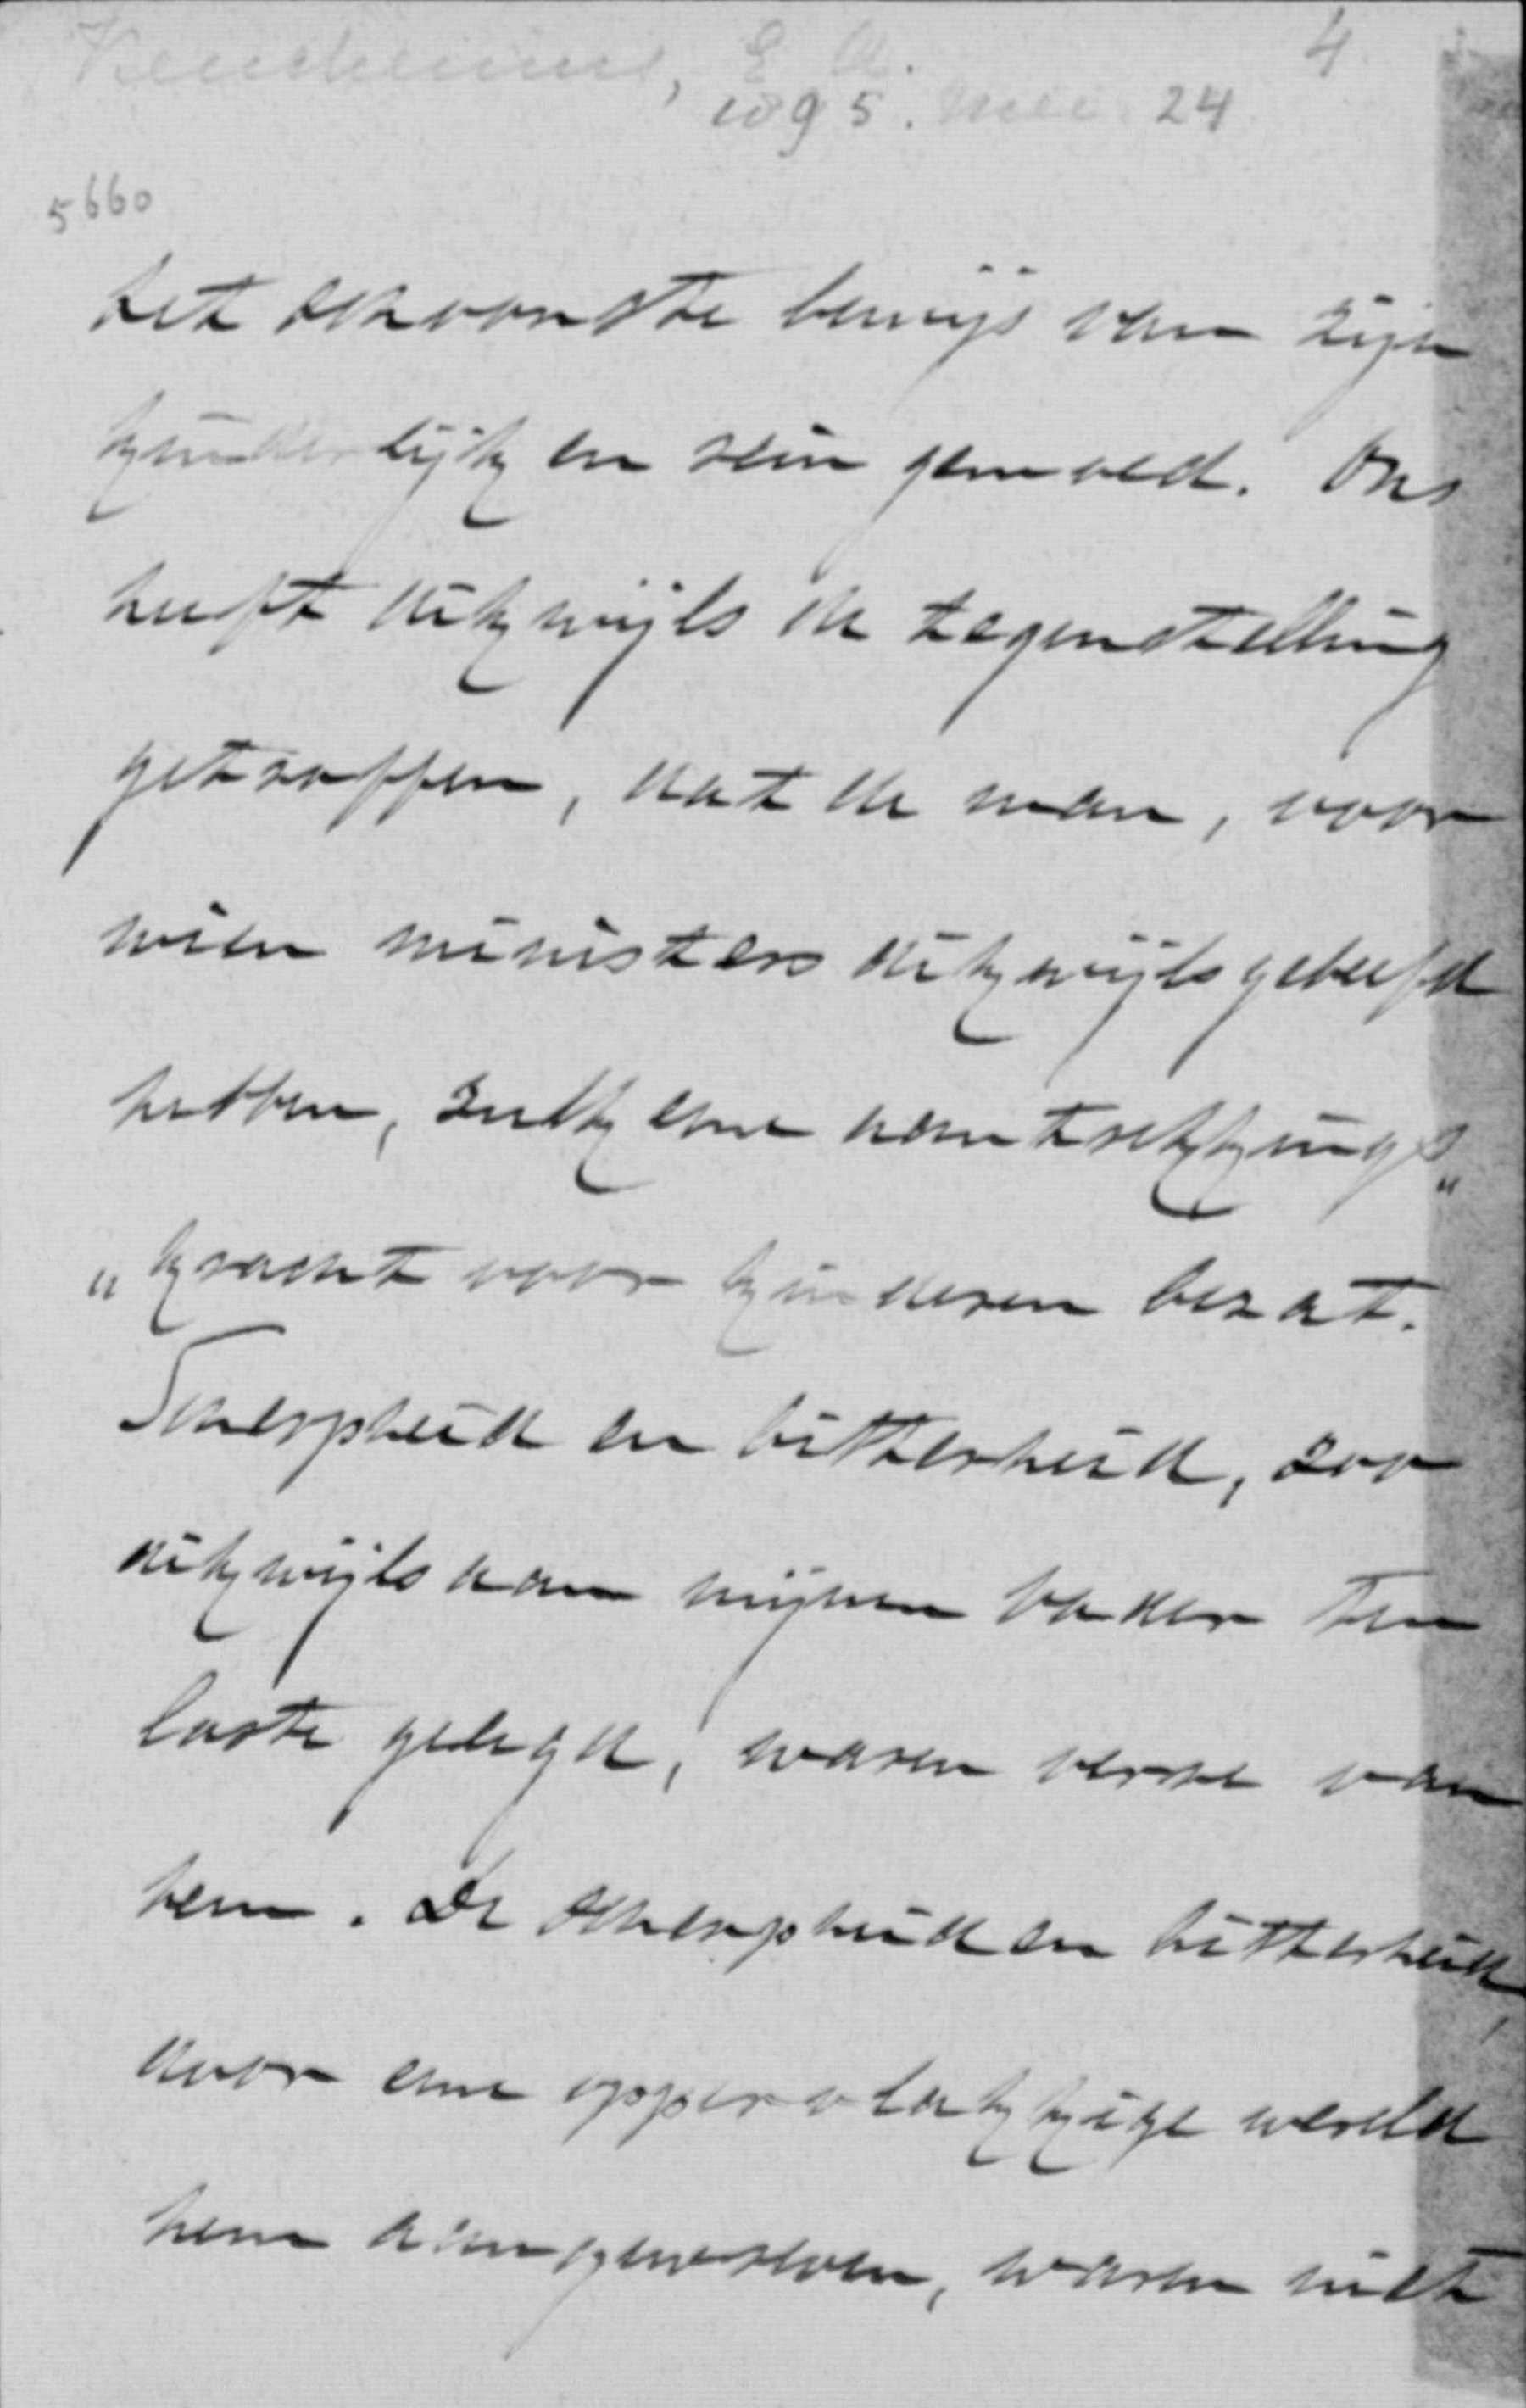 Keuchenius, L. W. 4
1895. Mei 24
5660
het schoonste bewijs van zijn
kinderlijk en rein gemoed. Ons
heeft dikwijls de tegenstelling
getroffen, dat de man, voor
wien ministers dikwijls gebeefd
hebben, zulk eene aantrekkings„
„kracht voor kinderen bezat.
Scherpheid en bitterheid, zoo
dikwijls aan mijnen vader ten
laste gelegd, waren verre van
hem. De scherpheid en bitterheid,
door eene oppervlakkige wereld
hem aangewreven, waren niet